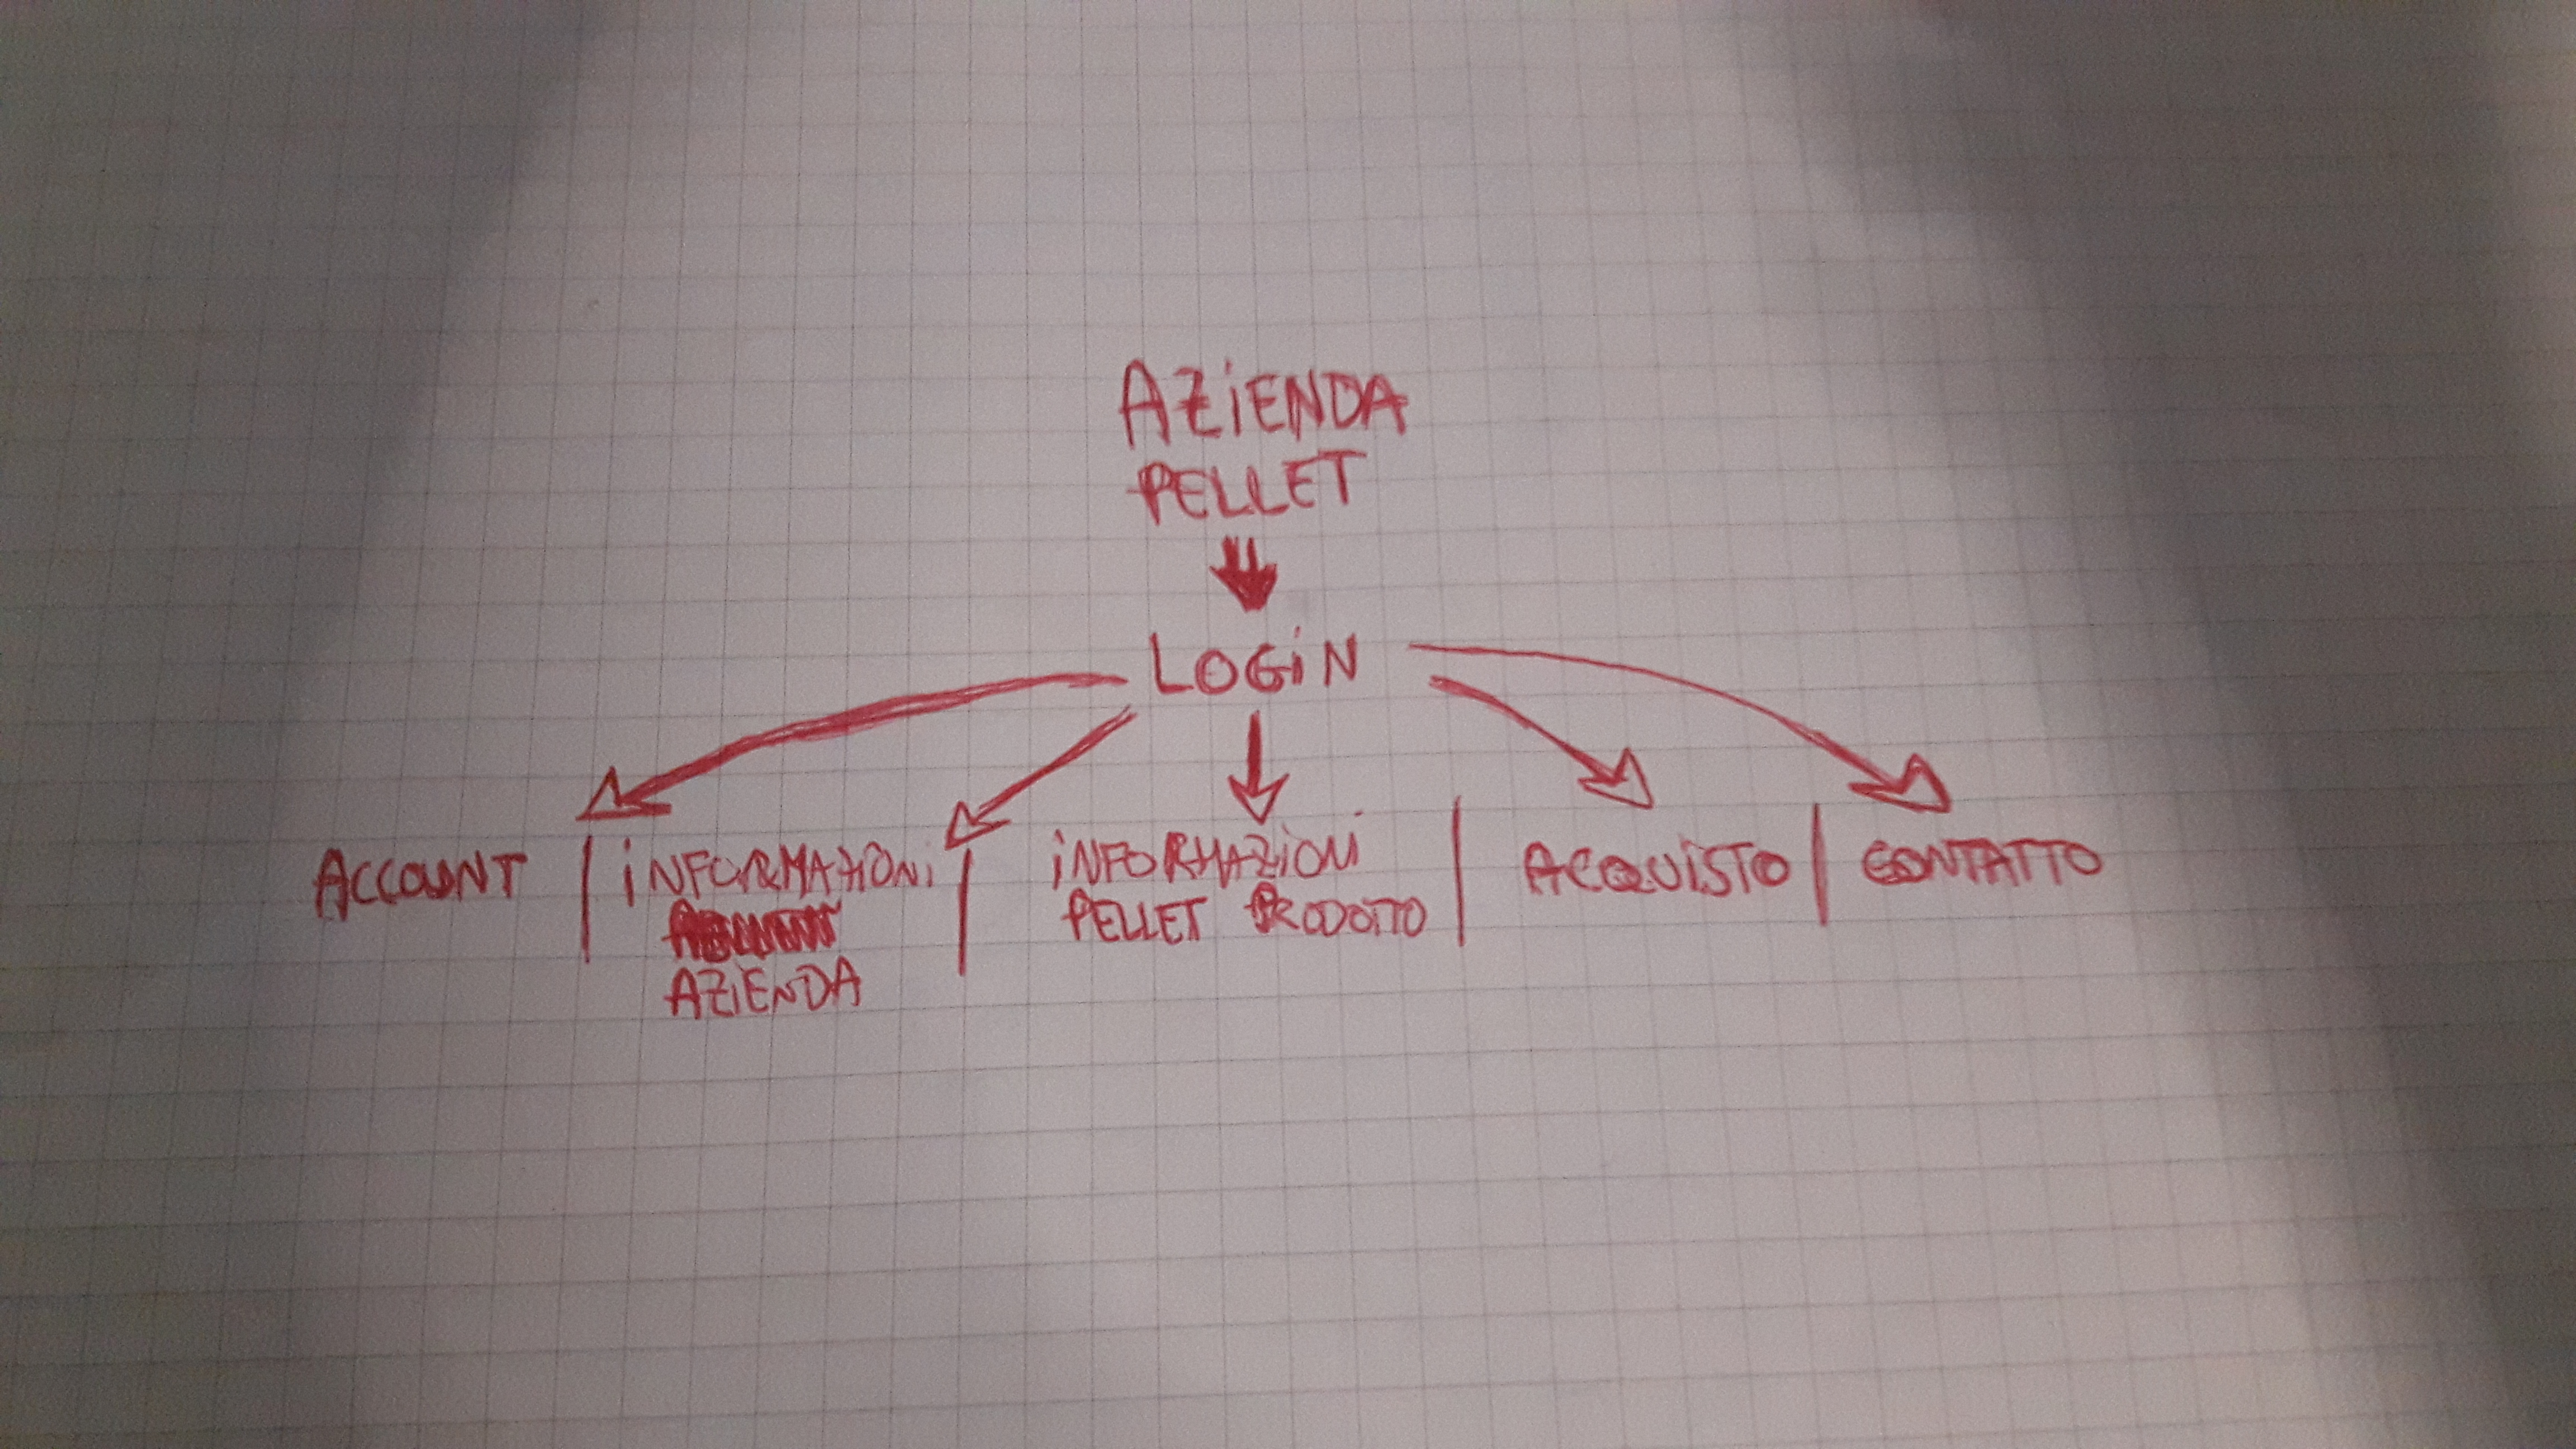 AZiENDA
PELLET
LOGiN
ACCOUNT
iNFORMAZIONi
AZiENDA
iNFORMAZiONi
PELLET PRODOTTO
ACQUiSTO
CONTATTO